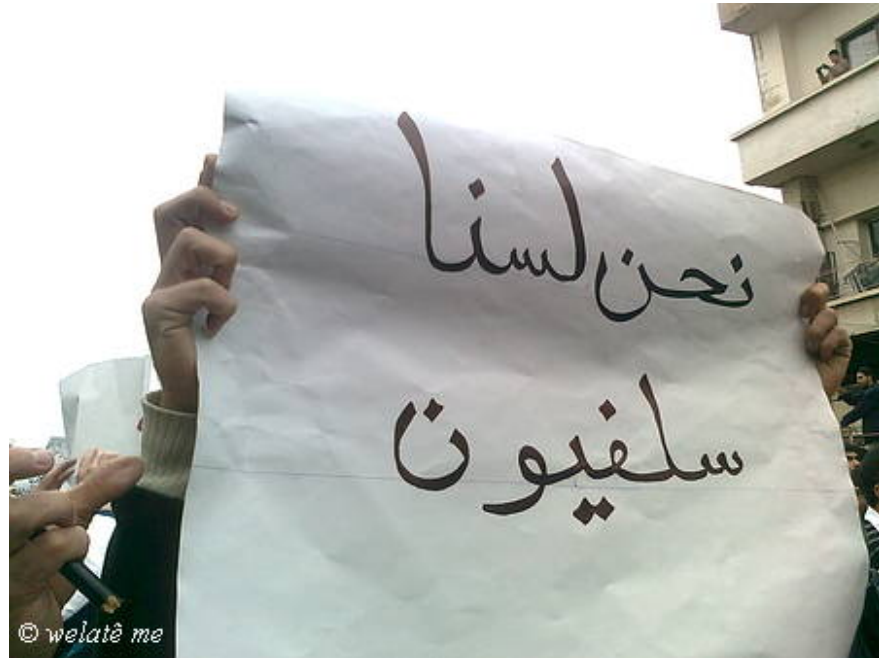 نحن لسنا
سلفيون
© welatê me